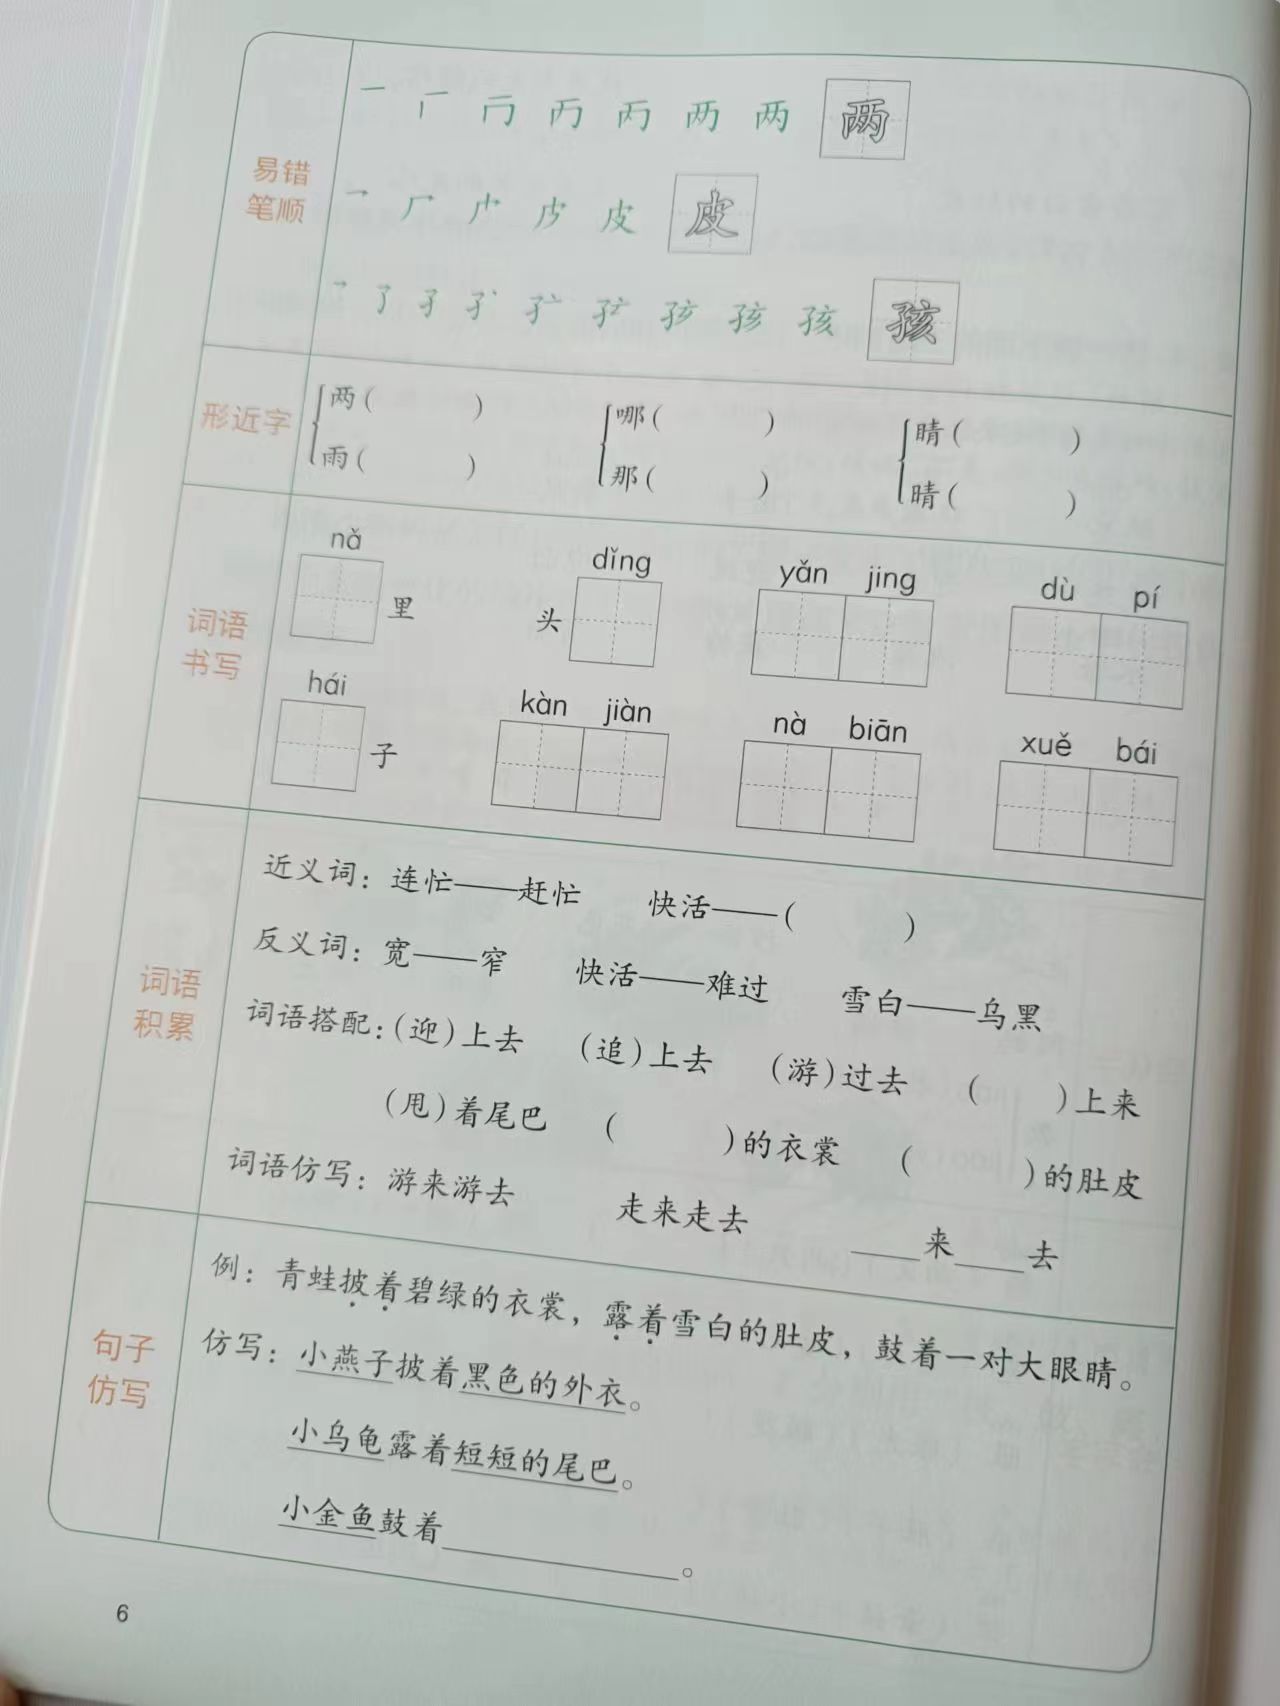 易错
笔顺
两
皮
孩
形近字
两( ) 哪( ) 睛( )
雨( ) 那( ) 晴( )
词语
书写
nǎ dǐng yǎn jing dù pí
里 头
hái kàn jiàn nà biān xuě bái
子
词语
积累
近义词：连忙——赶忙 快活——( )
反义词：宽——窄 快活——难过 雪白——乌黑
词语搭配：(迎)上去 (追)上去 (游)过去 ( )上来
(甩)着尾巴 ( )的衣裳 ( )的肚皮
词语仿写：游来游去 走来走去 ____来____去
句子
仿写
例：青蛙披着碧绿的衣裳，露着雪白的肚皮，鼓着一对大眼睛。
仿写：小燕子披着黑色的外衣。
小乌龟露着短短的尾巴。
小金鱼鼓着______________。
6